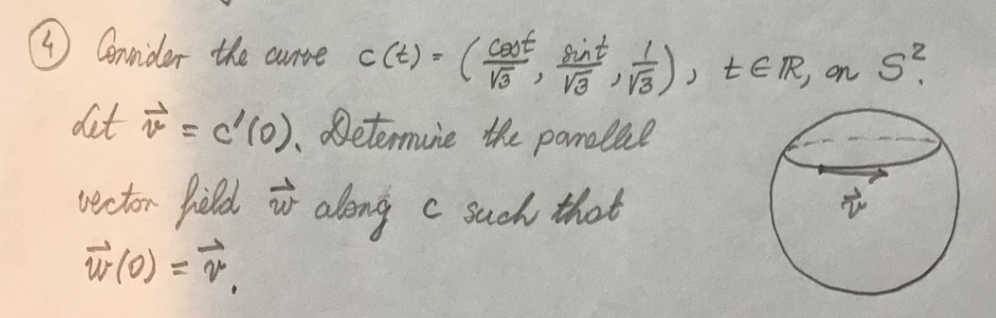 ④ Consider the curve c(t) = (cost/√3, sint/√3, 1/√3), t ∈ ℝ, on S².
Let v⃗ = c'(0). Determine the parallel
vector field w⃗ along c such that
w⃗(0) = v⃗.
v⃗